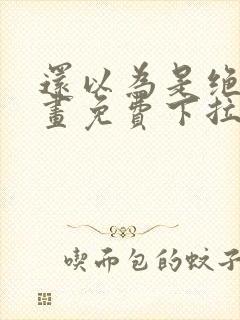 還以為是絕
畫免費下拉
喫面包的蚊子